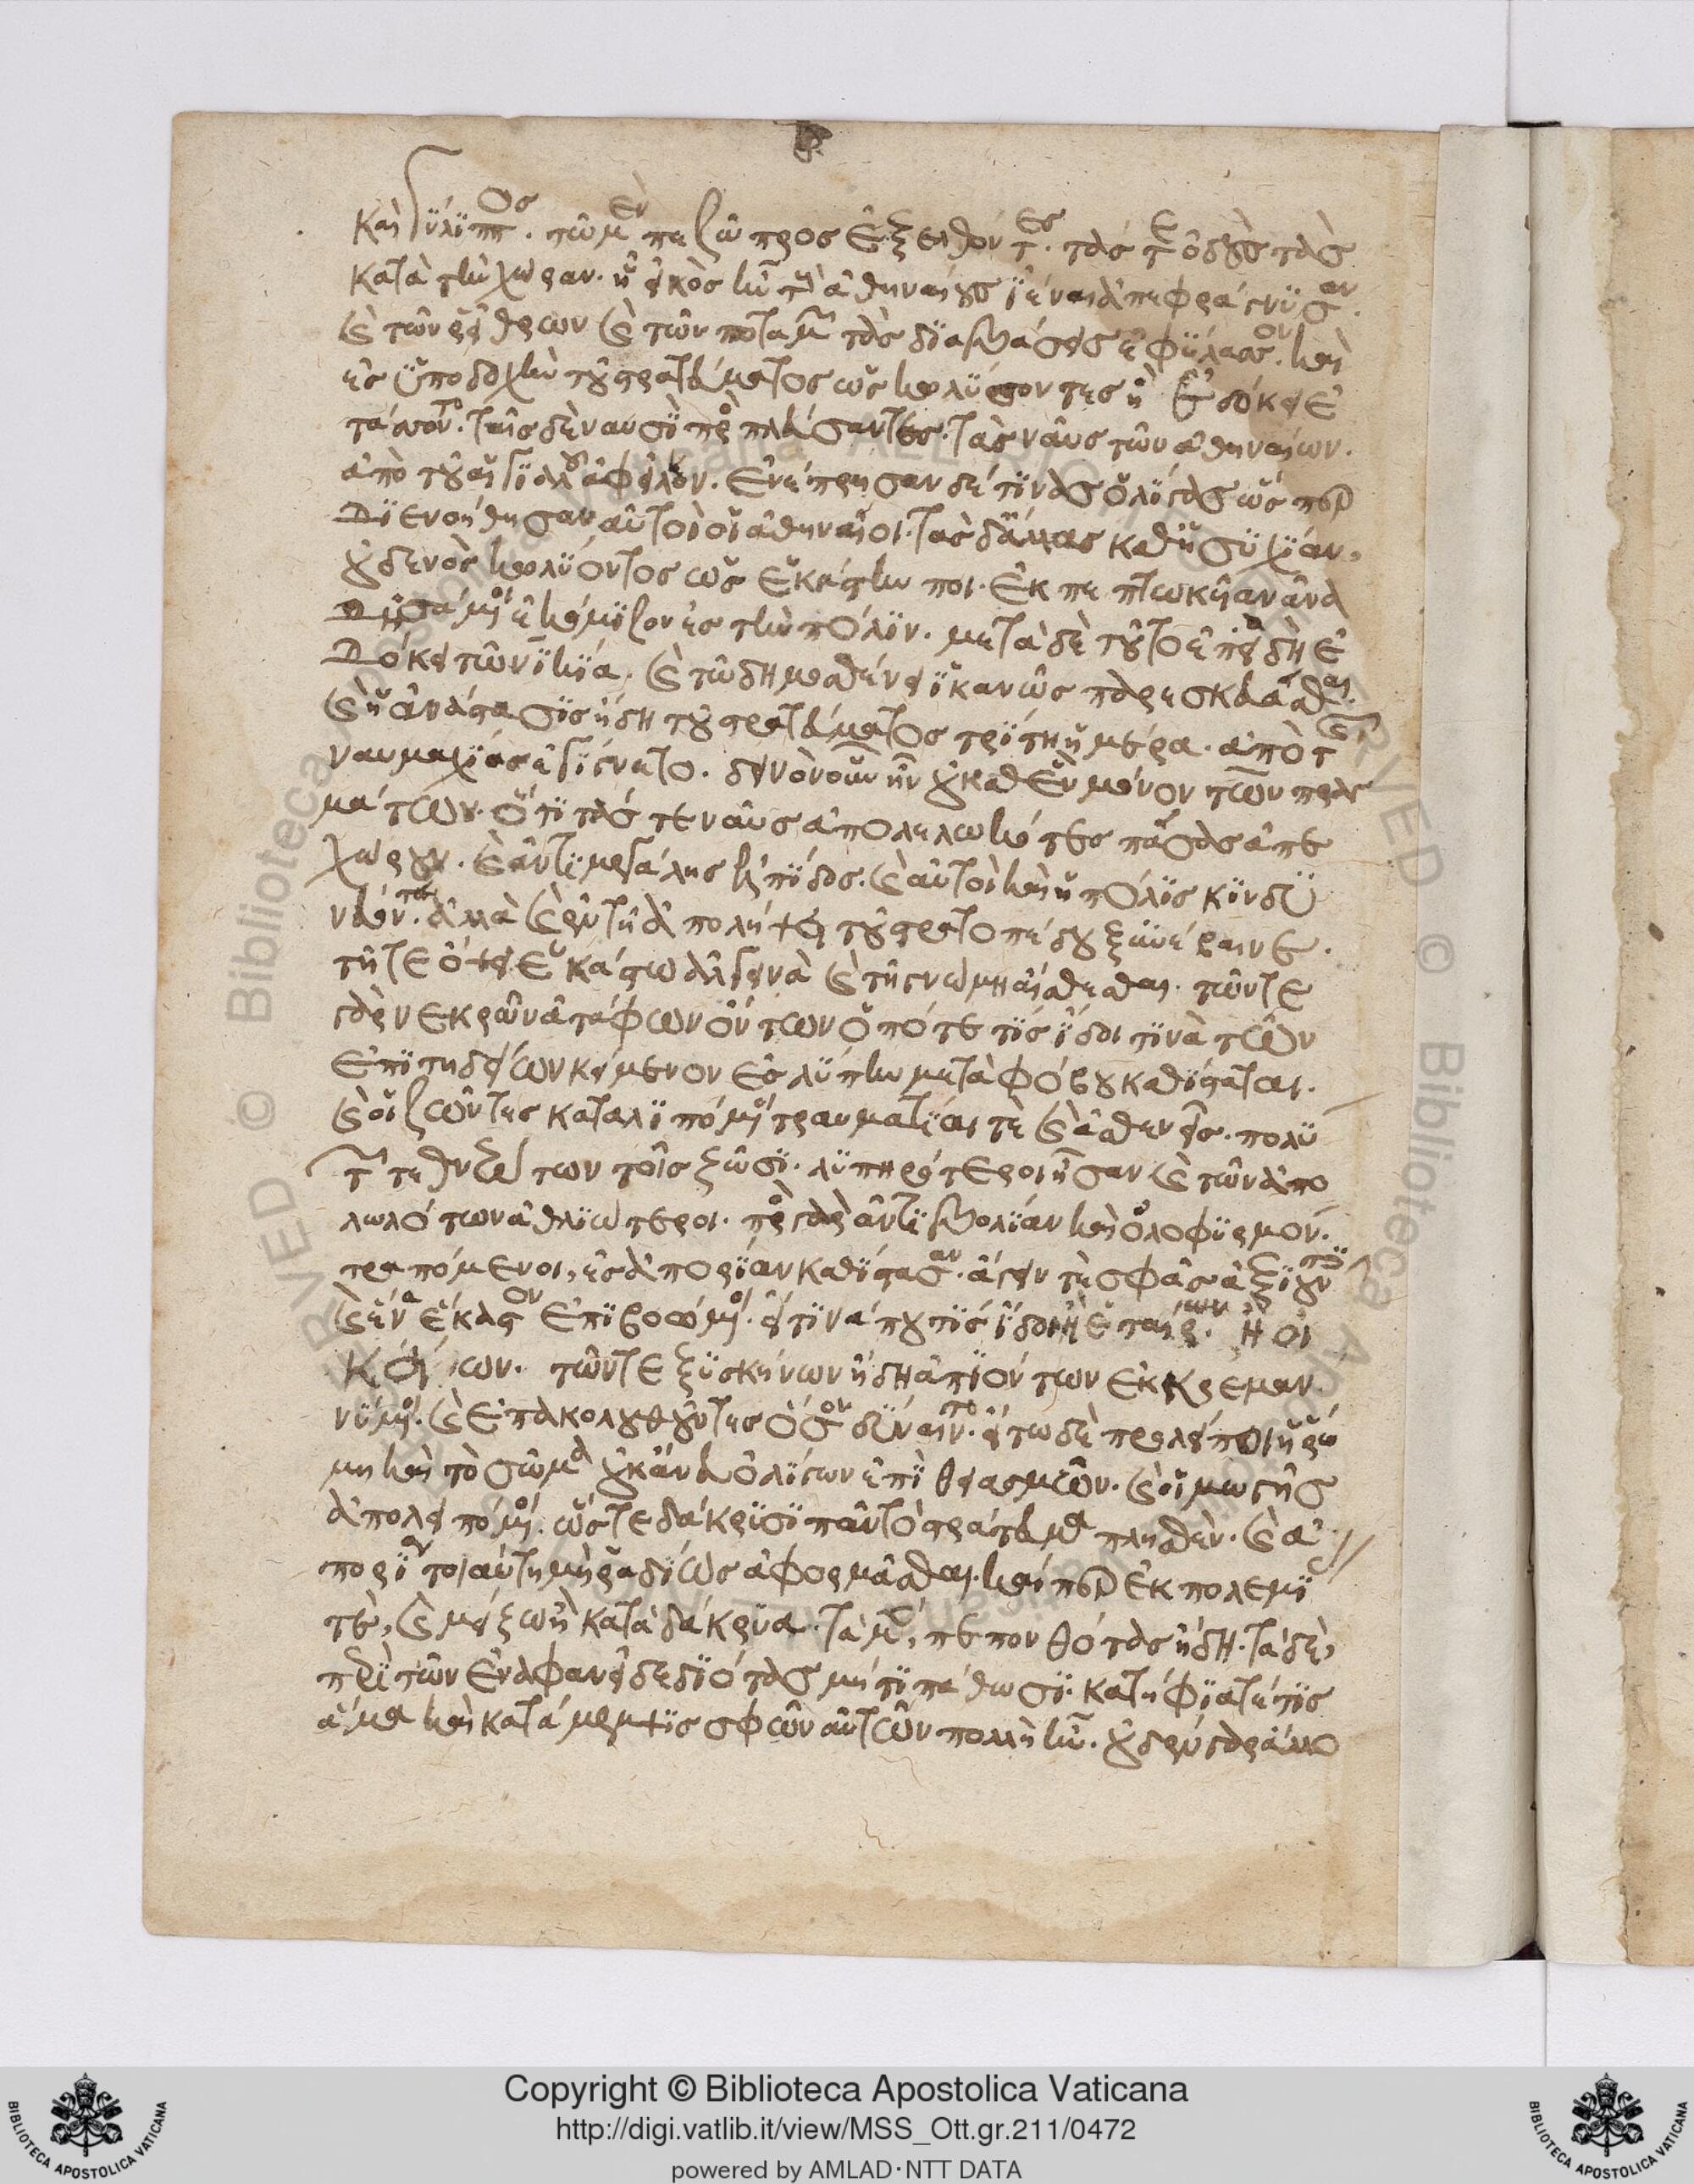 καὶ γύλιππος. τῶ μὲν πεζῶ προσεξελθόντες. τάς τε ὁδοὺς τὰς
κατὰ τὴν χώραν. ἧ εἰκὸς ἦν τοὺς ἀθηναίους ἰέναι ἀπεφράγνυσαν.
καὶ τῶν ῥείθρων καὶ τῶν ποταμῶν τὰς διαβάσεις ἐφύλασσον. καὶ
ἐς ὑποδοχὴν τοῦ στρατεύματος ὡς κωλύσοντες ἧ ἐδόκει ἐ
τάσσοντο. ταῖς δὲ ναυσὶ προσπλεύσαντες. τὰς ναῦς τῶν ἀθηναίων.
ἀπὸ τοῦ αἰγιαλοῦ ἀφεῖλκον. ἐνέπρησαν δέ τινας ὀλίγας ὥσπερ
διενοήθησαν αὐτοὶ οἱ ἀθηναῖοι. τὰς δ' ἄλλας καθ' ἡσυχίαν.
οὐδενὸς κωλύοντος ὡς ἑκάστην ποι. ἐκπεπτωκυῖαν ἀνα
δησάμενοι ἐκόμιζον ἐς τὴν πόλιν. μετὰ δὲ τοῦτο ἐπειδὴ ἐ
δόκει τῶ νικία. καὶ τῶ δημοσθένει ἱκανῶς παρεσκευάσθαι.
καὶ ἡ ἀνάστασις ἤδη τοῦ στρατεύματος τρίτη ἡμέρα. ἀπὸ τῆς
ναυμαχίας ἐγίγνετο. δεινὸν οὖν ἦν οὐ καθ' ἓν μόνον τῶν πραγ
μάτων. ὅτι τάς τε ναῦς ἀπολωλεκότες πάσας ἀπε
χώρουν. καὶ ἀντὶ μεγάλης ἐλπίδος. καὶ αὐτοὶ καὶ ἡ πόλις κινδυ
νεύοντες. ἀλλὰ καὶ ἐν τῆ ἀπολείψει τοῦ στρατοπέδου ξυνέβαινε.
τῆ τε ὄψει ἑκάστω ἀλγεινὰ καὶ τῆ γνώμη αἰσθέσθαι. τῶν τε
γὰρ νεκρῶν ἀτάφων ὄντων ὁπότε τίς ἴδοι τινὰ τῶν
ἐπιτηδείων κείμενον ἐς λύπην μετὰ φόβου καθίστατο.
καὶ οἱ ζῶντες καταλιπόμενοι τραυματίαι τὲ καὶ ἀσθενεῖς. πολὺ
τῶν τεθνεώτων τοῖς ζῶσι. λυπηρότεροι ἦσαν καὶ τῶν ἀπο
λωλότων ἀθλιώτεροι. πρὸς γὰρ ἀντιβολίαν καὶ ὀλοφυρμόν.
τραπόμενοι, ἐς ἀπορίαν καθίστασαν. ἄγειν τὲ σφᾶς ἀξιοῦντες
καὶ ἕνα ἕκαστον ἐπιβοώμενοι. εἴ τινά πού τίς ἴδοι ἢ ἑταίρων ἢ οἰ
κείων. τῶν τε ξυσκήνων ἤδη ἀπιόντων ἐκκρεμαν
νύμενοι. καὶ ἐπακολουθοῦντες ὅσον δύναιντο. εἴ τω δὲ προλείποι ἡ ῥώ
μη καὶ τὸ σῶμα οὐκ ἄνευ ὀλίγων ἐπιθειασμῶν. καὶ οἰμωγῆς
ἀπολειπόμενοι. ὥστε δάκρυσι πᾶν τὸ στράτευμα πλησθὲν. καὶ ἀ
πορία τοιαύτη μὴ ῥαδίως ἀφορμᾶσθαι. καίπερ ἐκ πολεμί
ας τὲ, καὶ μείζω ἢ κατὰ δάκρυα. τὰ μὲν, πεπονθότας ἤδη. τὰ δὲ,
περὶ τῶν ἐν ἀφανεῖ δεδιότας μή τι πάθωσι. κατήφιά τέ τις
ἅμα καὶ κατάμεμψις σφῶν αὐτῶν πολλὴ ἦν. οὐδὲν γὰρ ἄλλο
Copyright © Biblioteca Apostolica Vaticana
http://digi.vatlib.it/view/MSS_Ott.gr.211/0472
powered by AMLAD·NTT DATA